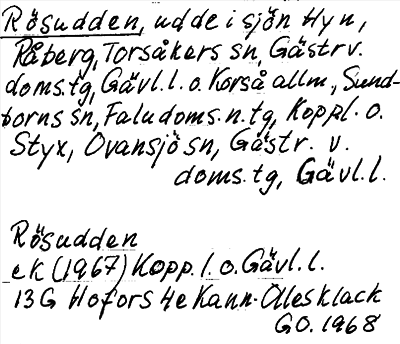 Rösudden, udde i sjön Hyn,
Råberg, Torsåkers sn, Gästr v.
doms.tg, Gävl. l. o. Korså allm., Sund-
borns sn, Falu doms. n. tg, Koppl. o.
Styx, Ovansjö sn, Gästr. v.
doms. tg, Gävl. l.
Rösudden
ek (1967) Kopp. l. o. Gävl. l.
13 G Hofors 4e Kann-Ollesklack
GO. 1968